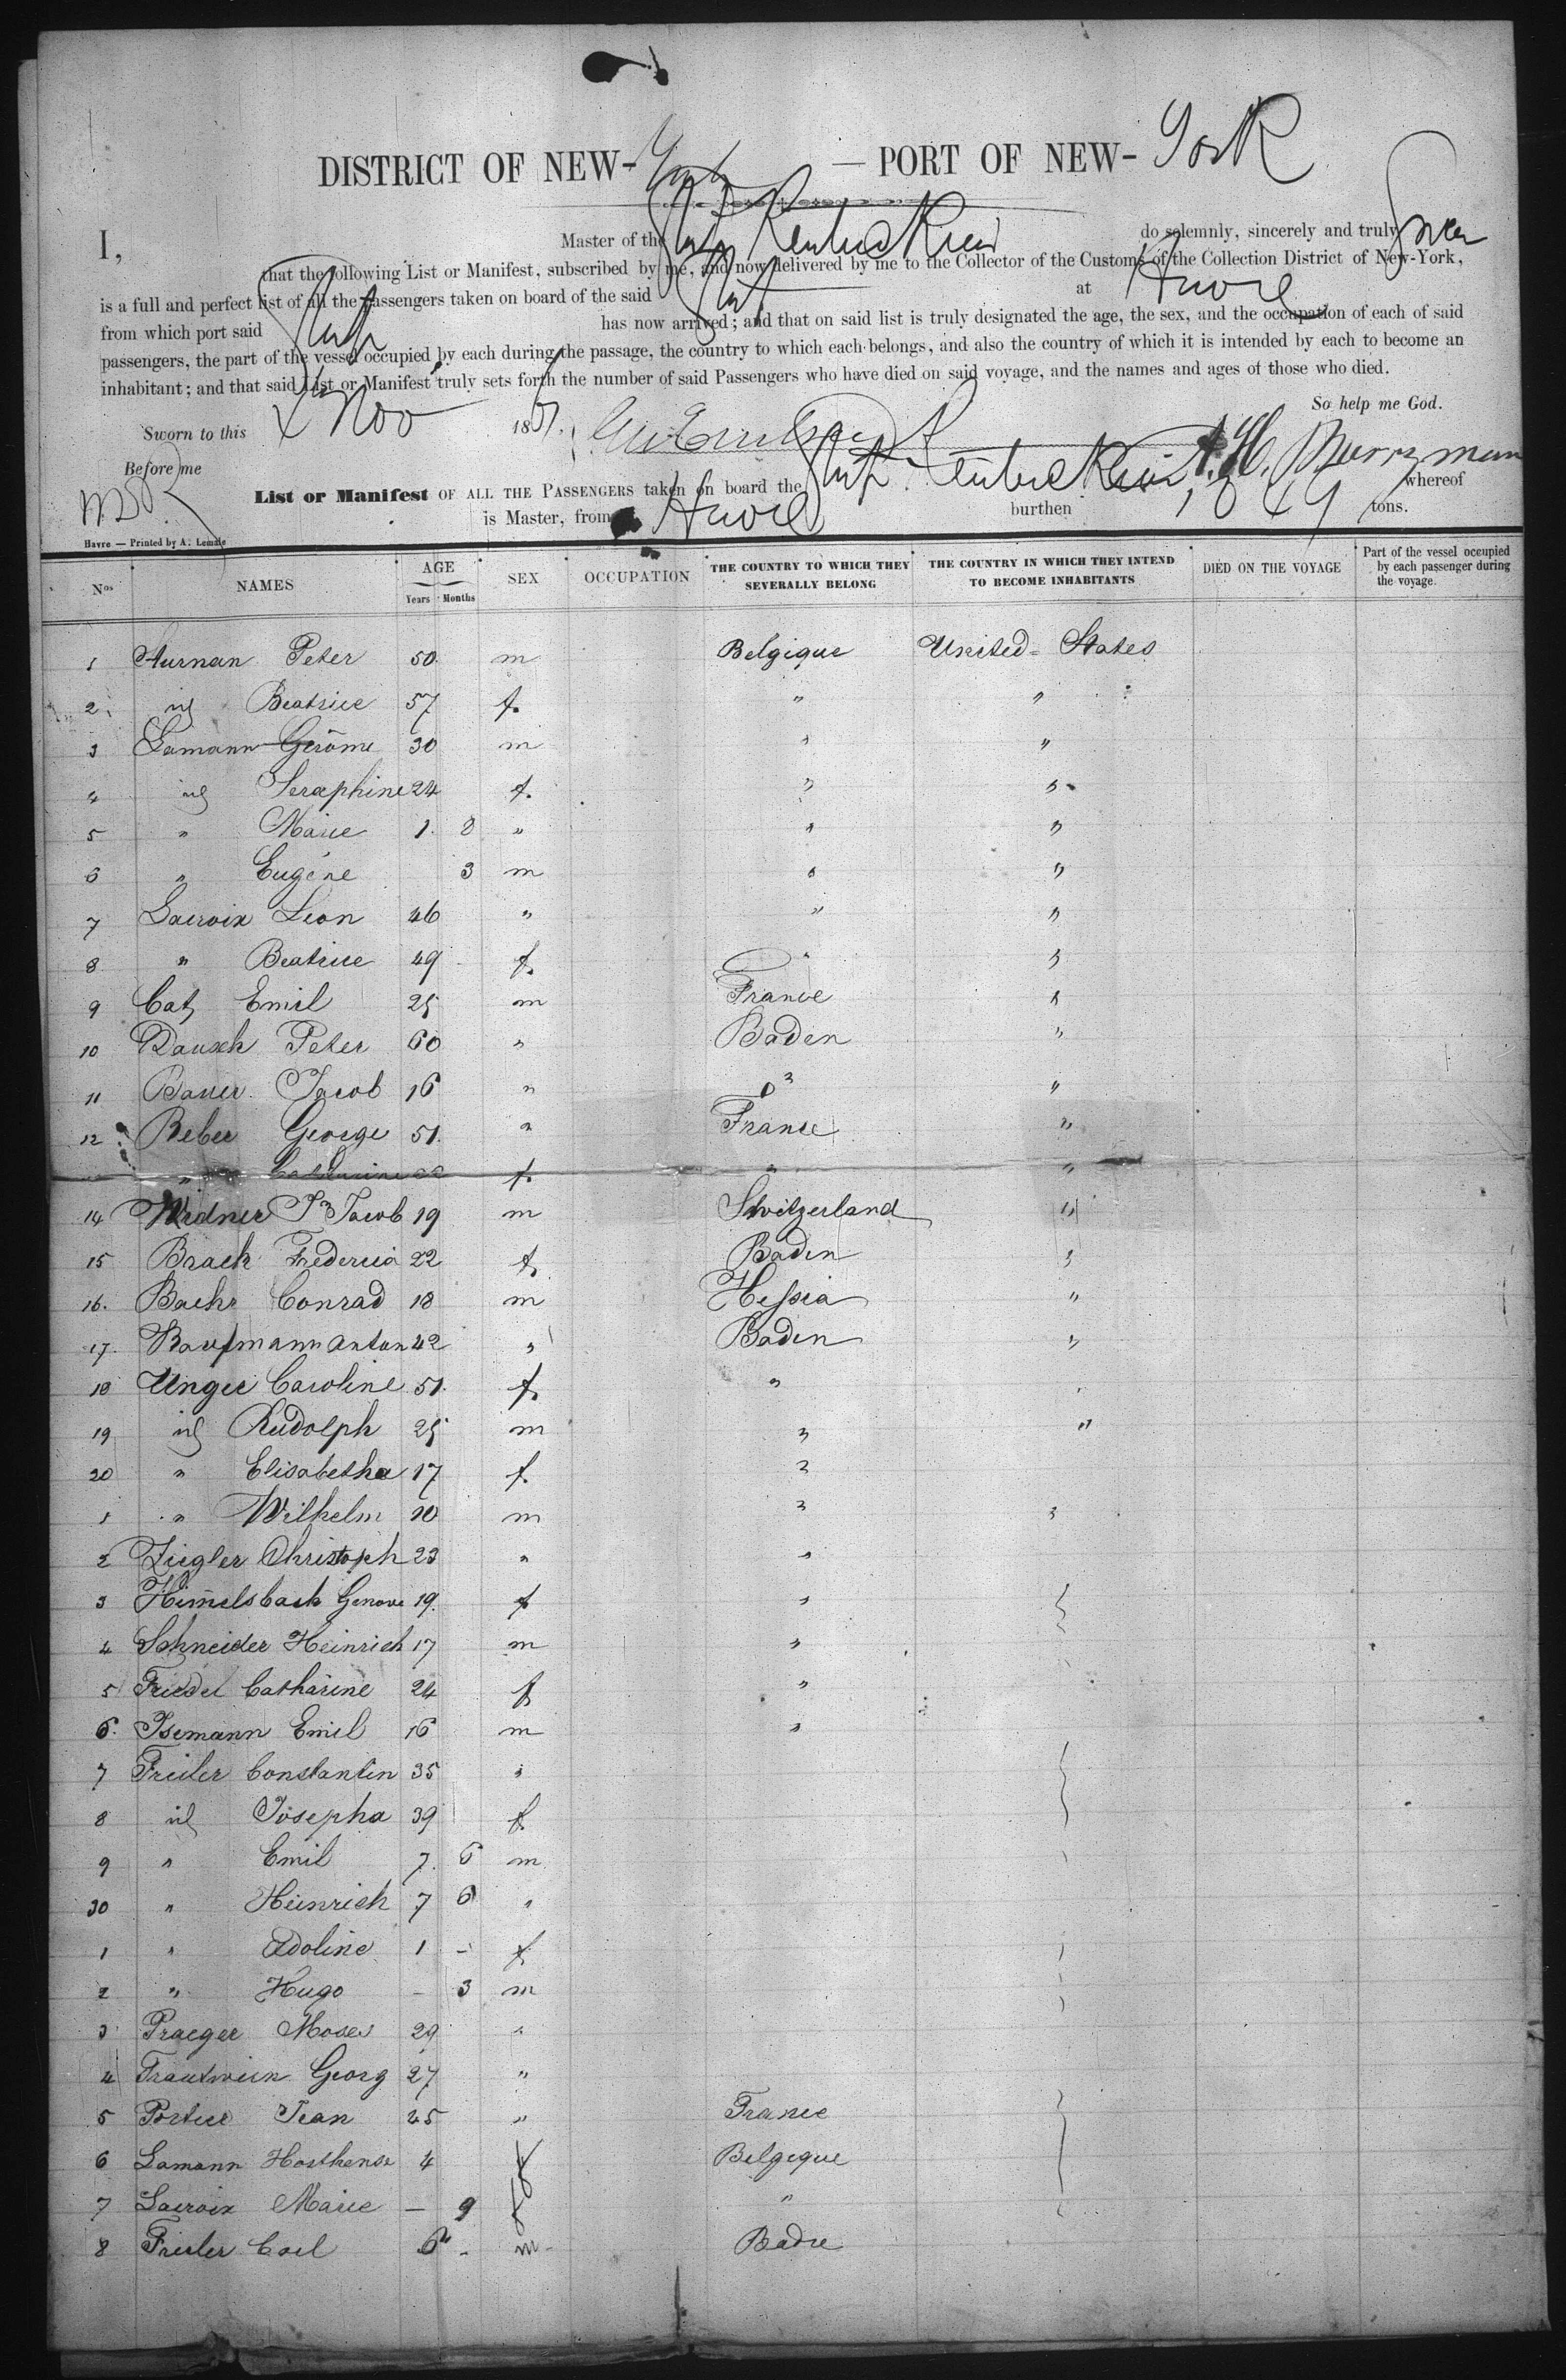 DISTRICT OF NEW-York — PORT OF NEW-York
I, Master of the Ship Kentuckian do solemnly, sincerely and truly swear
that the following List or Manifest, subscribed by me, and now delivered by me to the Collector of the Customs of the Collection District of New-York,
is a full and perfect list of all the passengers taken on board of the said Ship at Havre
from which port said Ship has now arrived; and that on said list is truly designated the age, the sex, and the occupation of each of said
passengers, the part of the vessel occupied by each during the passage, the country to which each belongs, and also the country of which it is intended by each to become an
inhabitant; and that said List or Manifest truly sets forth the number of said Passengers who have died on said voyage, and the names and ages of those who died.
So help me God.
Sworn to this Nov 186
Before me
List or Manifest OF ALL THE PASSENGERS taken on board the Ship Kentuckian whereof
is Master, from Havre burthen 1049 tons.
Havre — Printed by A. Lemale
Nos NAMES AGE Years Months SEX OCCUPATION THE COUNTRY TO WHICH THEY SEVERALLY BELONG THE COUNTRY IN WHICH THEY INTEND TO BECOME INHABITANTS DIED ON THE VOYAGE Part of the vessel occupied by each passenger during the voyage.
1 Hurnan Peter 50 m Belgique United-States
2 id Beatrice 57 f. " "
3 Lamann Gerôme 30 m " "
4 id Seraphine 24 f. " "
5 " Marie 1. 8 " " "
6 " Eugène 3 m " "
7 Lacroix Leon 46 " " "
8 " Beatrice 49 f. " "
9 Catz Emil 25 m France "
10 Rausch Peter 60 " Baden "
11 Bauer Jacob 16 " do "
12 Reber George 51. " France "
" Catharine 22 f. " "
14 Widner J. Jacob 19 m Switzerland "
15 Brack Frederica 22 f. Baden "
16. Bachr Conrad 18 m Hessia "
17. Kaufmann Anton 42 " Baden "
18 Unger Caroline 51. f. "
19 id Rudolph 25 m " "
20 " Elisabetha 17 f. "
1 " Wilhelm 10 m " "
2 Ziegler Christoph 23 " "
3 Himelsbach Genove 19. f "
4 Schneider Heinrich 17 m "
5 Friedel Catharine 24 f "
6. Isemann Emil 16 m "
7 Freiler Constantin 35 "
8 id Josepha 39 f.
9 " Emil 7. 6 m
30 " Heinrich 7 6 "
1 " Adoline 1 - f.
2 " Hugo - 3 m
3 Praeger Moses 29 "
4 Trautwein Georg 27 "
5 Portier Jean 25 " France
6 Lamann Horthense 4 f Belgique
7 Lacroix Marie — 9 f "
8 Freiler Carl 6 - m - Bade